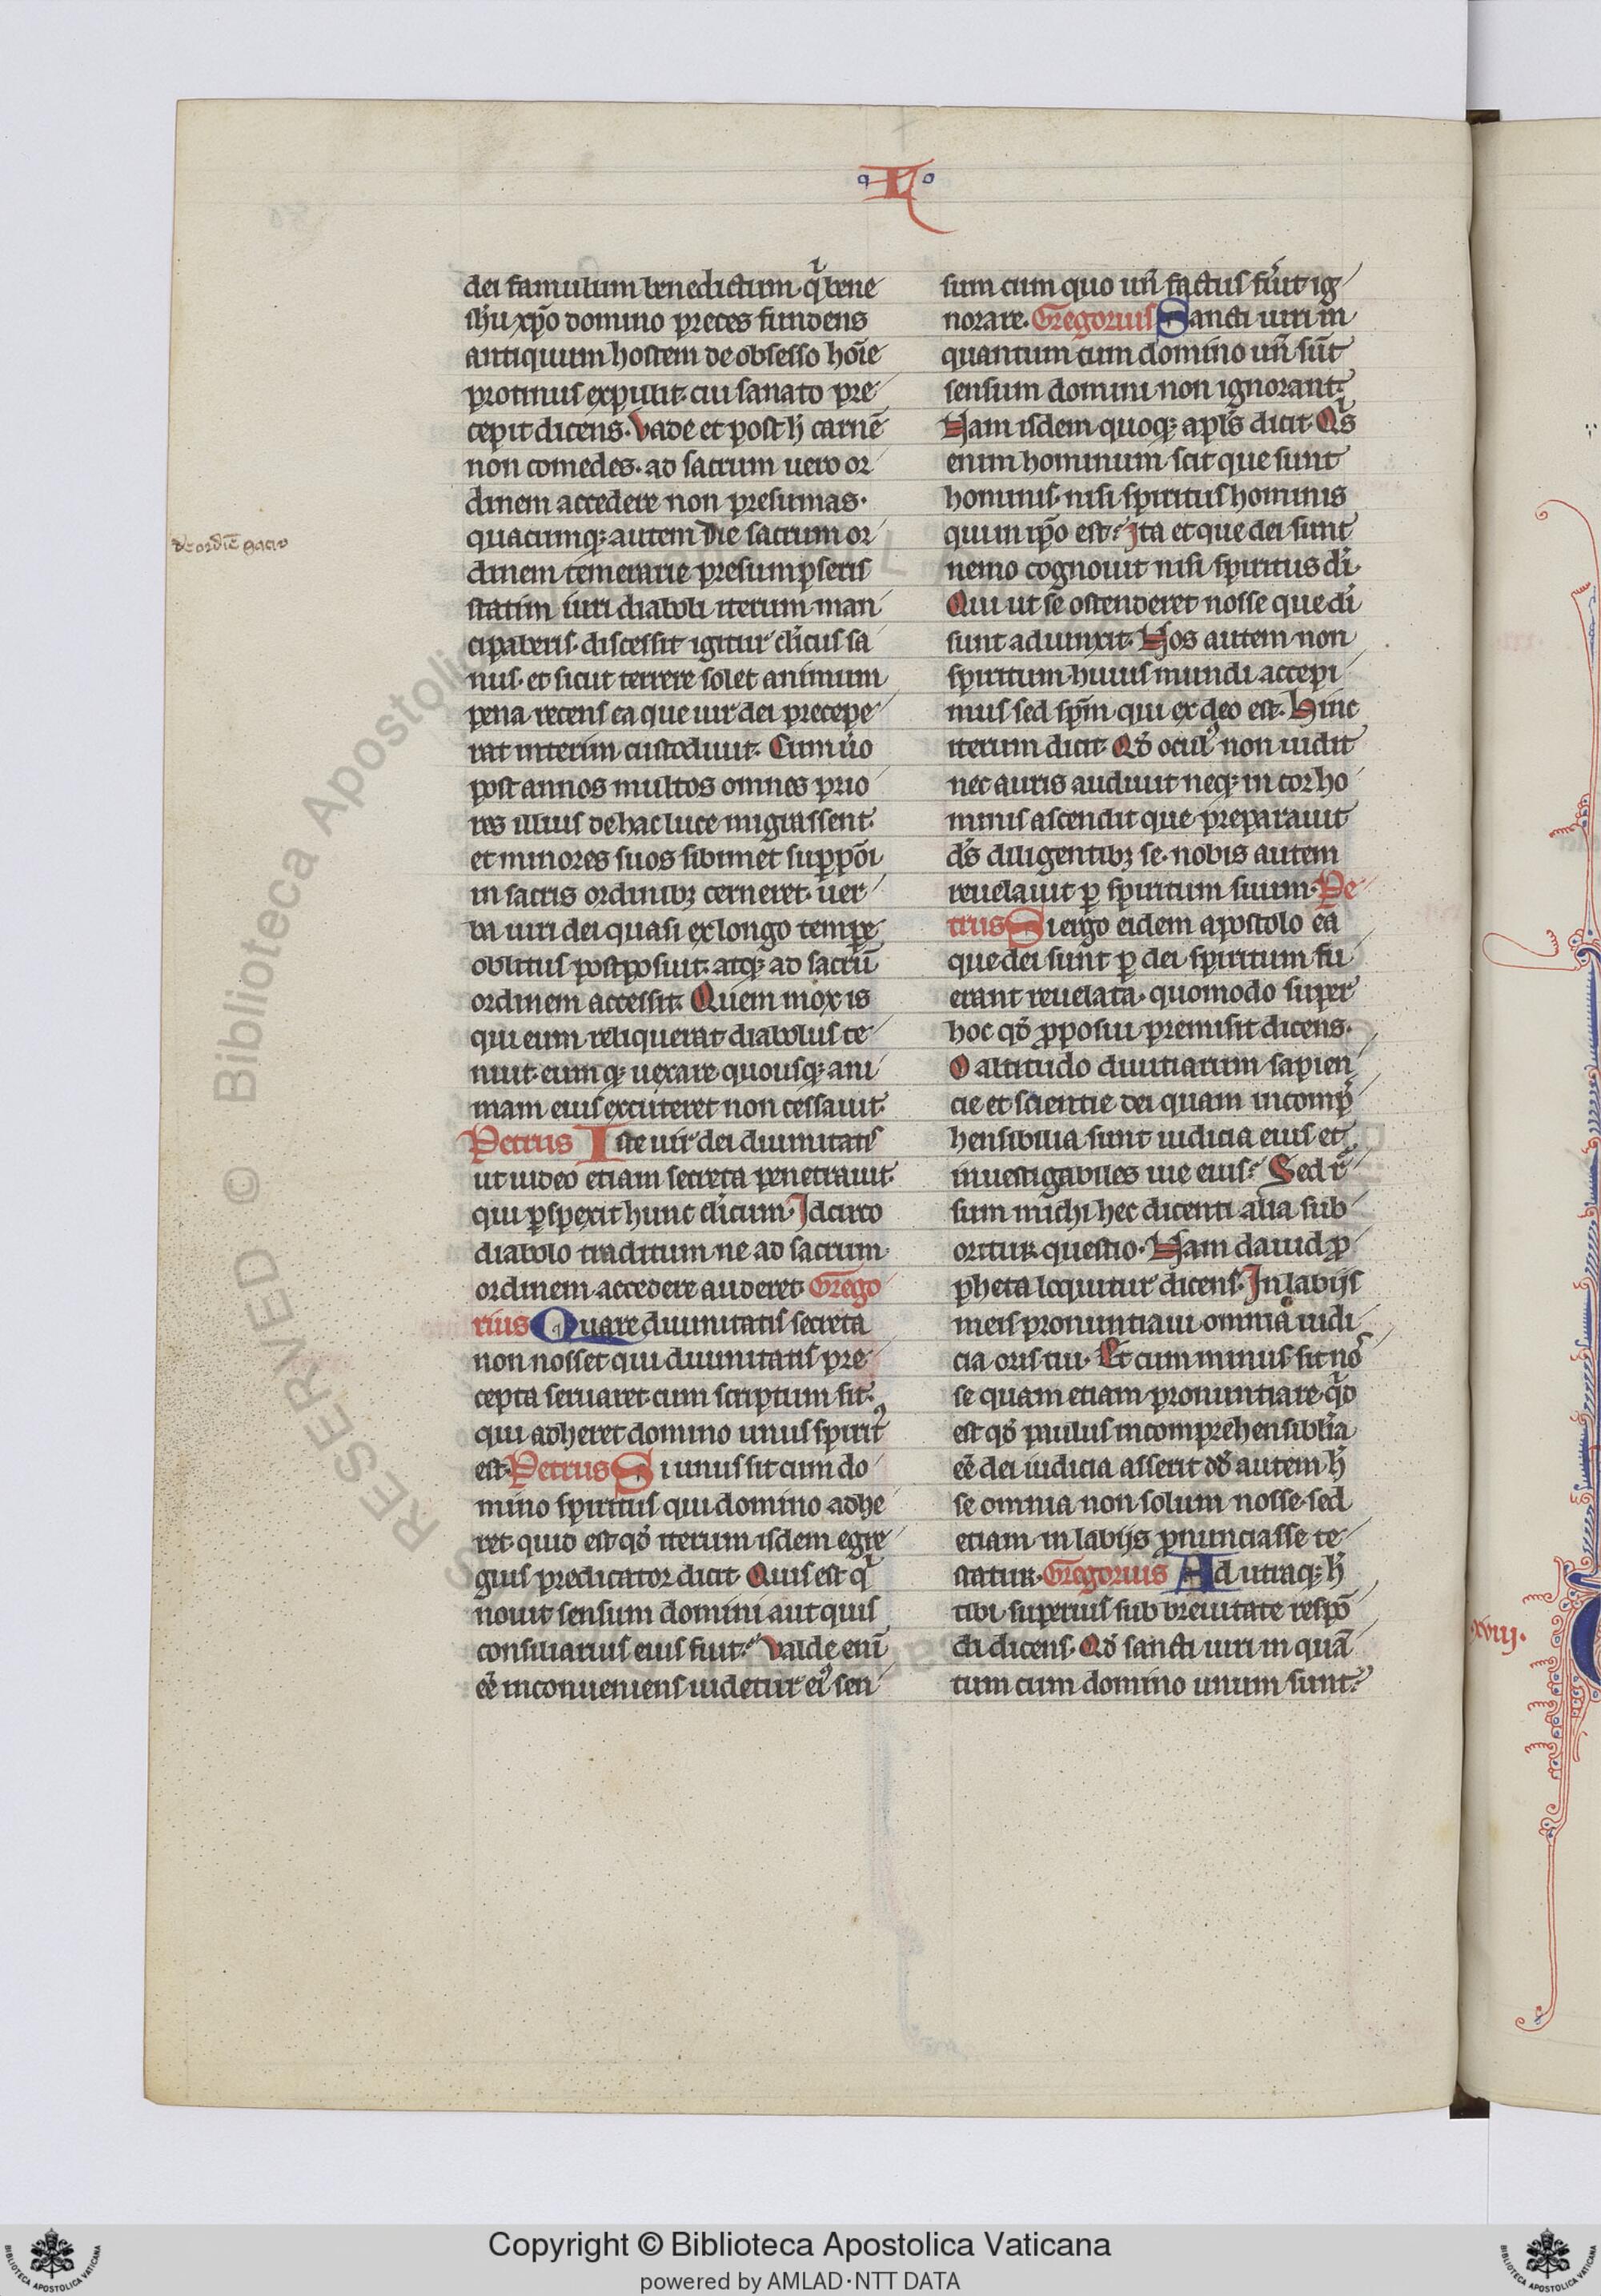 L
dei famulum benedictum· qͥ bene
ihu xp̄o domino preces fundens
antiquum hostem de obsesso hoīe
protinus expulit· cui sanato pre
cepit dicens· Vade et post h̄ carnē
non comedes· ad sacrum uero or
dinem accedere non presumas·
quacumqꝫ autem die sacrum or
dinem temerarie presumpseris
statim iuri diaboli iterum man
ciparis· discessit igitur cl̄icus sa
nus· et sicut terrere solet animum
pena recens ea que uir dei precepe
rat interim custodiuit· Cum ūo
post annos multos omnes prio
res illius de hac luce migrassent
et minores suos sibimet supponi
in sacris ordinibꝫ cerneret· uer
ba uiri dei quasi ex longo tempe
oblitus postposuit· atqꝫ ad sacrū
ordinem accessit· Quem mox is
qui eum reliquerat diabolus te
nuit· eumqꝫ uexare quousqꝫ ani
mam eius excuteret non cessauit·
Petrus Iste uir dei diuinitatis
ut uideo etiam secreta penetrauit·
qui ꝑspexit hunc cl̄icum· Idcirco
diabolo traditum ne ad sacrum
ordinem accedere auderet· Grego
rius Quare diuinitatis secreta
non nosset qui diuinitatis pre
cepta seruaret cum scriptum sit·
qui adheret domino unus spiritꝰ
est· Petrus Si unus fit cum do
mino spiritus qui domino adhe
ret· quid est qd̄ iterum isdem egre
gius predicator dicit· Quis est qͥ
nouit sensum domini aut quis
consiliarius eius fuit? Valde enī
eē inconueniens uidetur eiꝰ sen
sum cum quo un̄ factus fūit ig
norare· Gregorius Sancti uiri in
quantum cum domino un̄ sūt
sensum domini non ignorant·
Nam isdem quoqꝫ apl̄s dicit· Qͥs
enim hominum scit que sunt
hominis· nisi spiritus hominis
qui in ip̄o est? Ita et que dei sunt
nemo cognouit nisi spiritus di·
Qui ut se ostenderet nosse que di
sunt adiunxit· Nos autem non
spiritum huius mundi accepi
mus sed sp̄m qui ex deo est· Hinc
iterum dicit· Qd̄ oculꝰ non uidit
nec auris audiuit neqꝫ in cor ho
minis ascendit que preparauit
ds̄ diligentibꝫ se· nobis autem
reuelauit ꝑ spiritum suum· Pe
trus Si ergo eidem apostolo ea
que dei sunt ꝑ dei spiritum fu
erant reuelata· quomodo super
hoc qd̄ ꝓposui premisit dicens·
O altitudo diuitiarum sapien
cie et scientie dei quam incomp̄
hensibilia sunt iudicia eius et
inuestigabiles uie eius? Sed r̄
sum michi hec dicenti alia sub
oritur questio· Nam dauid ꝓ
pheta loquitur dicens· In labijs
meis pronuntiaui omnia iudi
cia oris tui· Et cum minus sit nos
se quam etiam pronuntiare· qͥd
est qd̄ paulus incomprehensiblia
eē dei iudicia asserit dd̄ autem h̄
se omnia non solum nosse· sed
etiam in labijs ꝓnunciasse te
statur· Gregorius Ad utraqꝫ h̄
tibi superius sub breuitate respō
di dicens· Qd̄ sancti uiri in quā
tum cum domino unum sunt·
xviij·